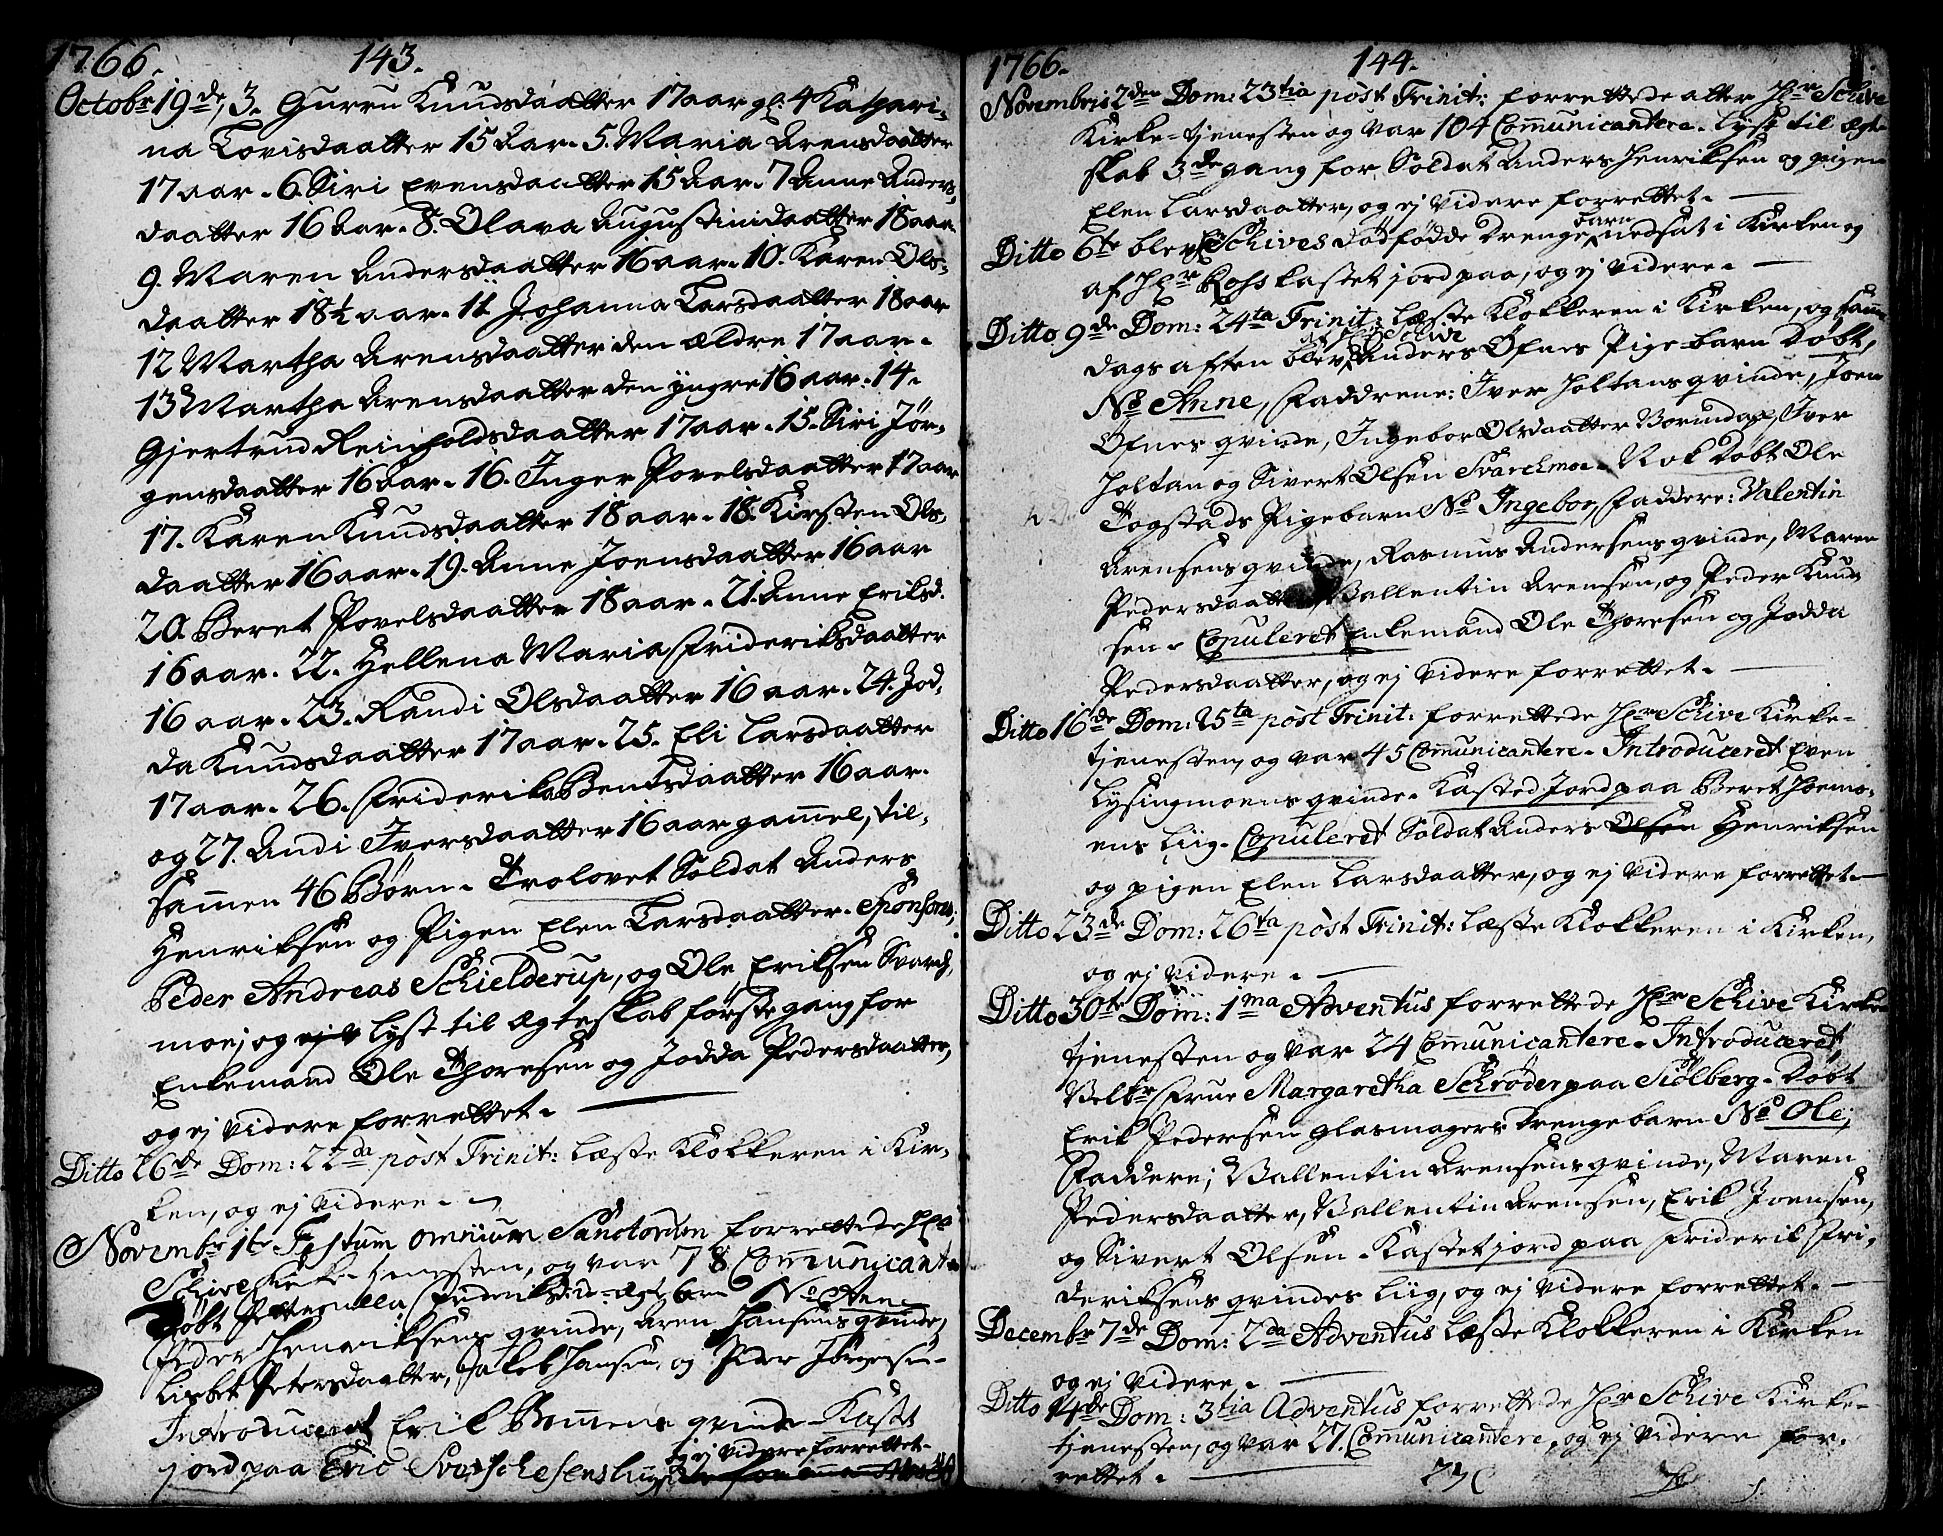 1766. 143.
Octobr 19de, 3. Gurru Knudsdaatter 17 aar gl: 4 Kathari-
na Tovisdaatter 15 aar. 5. Maria Arensdaatter
17 aar. 6. Siri Evensdaatter 15 aar. 7 Anne Anders,
daatter 16 aar. 8. Olava Augustinidaatter 18 aar.
9. Maren Andersdaatter 16 aar. 10. Karen Ols-
daatter 18½ aar. 11. Johanna Larsdaatter 18 aar
12 Martha Arensdaatter den ældre 17 aar.
13 Martha Arensdaatter den yngre 16 aar. 14.
Gjertrud Reinholdsdaatter 17 aar. 15. Siri Jør-
gensdaatter 16 aar. 16. Inger Povelsdaatter 17 aar
17. Karen Knudsdaatter 18 aar. 18. Kirsten Ols,
daatter 16 aar. 19. Anne Joensdaatter 16 aar
20. Beret Povelsdaatter 18 aar. 21. Anne Eriksd.
16 aar. 22. Hellena Maria Frideriksdaatter
16 aar. 23. Randi Olsdaatter 16 aar. 24. Jod,
da Knudsdaatter 17 aar. 25. Eli Larsdaatter
17 aar. 26. Friderika Bentsdaatter 16 aar.
og 27. Andi Iversdaatter 16 aar gammel, til-
sammen 46 Børn. Trolovet Soldat Anders
Henriksen og Pigen Elen Larsdaatter. Sponsores;
Peder Andreas Schielderup, og Ole Eriksen Svarch,
moe, og ej v lyst til ægteskab første gang for
Enkemand Ole Thoresen og Jodda Pedersdaatter,
og ej videre forrettet.
Ditto 26de Dom: 22da post Trinit: læste Klokkeren i Kir-
ken, og ej videre.
Novembr 1te Festum omnium Sanctorum forrettede Hr
Schive Kirke-tjenesten, og var 78 Communicant.
Døbt Petternilla No
Peder Henriksens qvinde, Aren Hansens qvinde,
Lisbet Petersdaatter, Jakob Hansen, og Peder Jørgensen.
Introduceret Erik Bommens qvinde Kast
og ej videre forrettet.
jord paa Eric

1766. 144.
Novembris 2den Dom: 23tia post Trinit: forrettede atter Hr Schive
Kirke-tjenesten og var 104 Communicantere. Lyst til ægte-
skab 3de gang for Soldat Anders Henriksen og pigen
Elen Larsdaatter, og ej videre forrettet.
Ditto 6te blev Schives dødfødde drenge barn nedsat i Kirken og
af Hr Ross kastet jord paa, og ej videre.
Ditto 9de Dom: 24ta Trinit: læste Klokkeren i Kirken, og samme
dags aften blev af Hr Schive Anders Øfnes Pige-barn døbt,
No Anne, Faddrene: Iver Holtans qvinde, Joen
Øfnes qvinde, Ingebor Olsdaatter Borundag, Iver
Holtan og Sivert Olsen Svarchmoe. Nok døbt Ole
Togstads Pigebarn No Ingebor, Faddere: Valentin
Arensens qvinde, Rasmus Andersens qvinde, Maren
Pedersdaatter, Vallentin Arensen, og Peder Knud
sen. Copuleret Enkemand Ole Thoresen og Jodda
Pedersdaatter, og ej videre forrettet.
Ditto 16de Dom: 25ta post Trinit: forrettede Hr Schive Kirke-
tjenesten, og var 45 Communicantere. Introduceret Even
Lysingmoens qvinde. Kasted Jord paa Beret Hoemo,
ens Liig. Copuleret Soldat Anders Olsen Henriksen
og pigen Elen Larsdaatter, og ej videre forrettet.
Ditto 23de Dom: 26ta post Trinit: læste Klokkeren i Kirken,
og ej videre.
Ditto 30te Dom: 1ma Adventus forrettede Hr Schive Kirke-
tjenesten og var 24 Communicantere. Introduceret
Velbr Frue Margaretha Schrøder paa Siølberg. Døbt
Erik Pedersen Glasmagers drengebarn No Ole;
Faddere; Vallentin Arensens qvinde, Maren
Pedersdaatter, Vallentin Arensen, Erik Joensen,
og Sivert Olsen. Kastet jord paa Friderik Fri,
deriksens qvindes Liig, og ej videre forrettet.
Decembr 7de Dom: 2da Adventus læste Klokkeren i Kirken
og ej videre.
Ditto 14de Dom: 3tia Adventus forrettede Hr Schive Kirke-
tjenesten, og var 27. Communicantere, og ej videre for.
rettet.